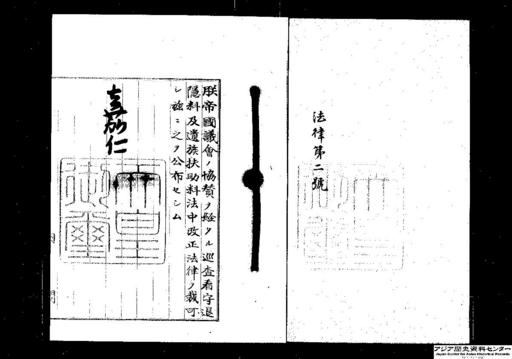 法律第二號
朕帝國議會ノ協贊ヲ經タル巡査看守退
隱料及遺族扶助料法中改正法律ヲ裁可
シ茲ニ之ヲ公布セシム
嘉仁
天皇御璽
アジア歴史資料センター
Japan Center for Asian Historical Records